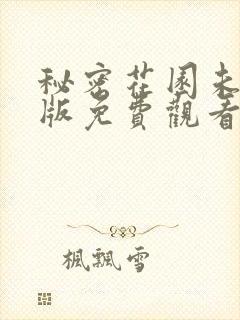 秘密花園未
版免費觀看
楓飄雪